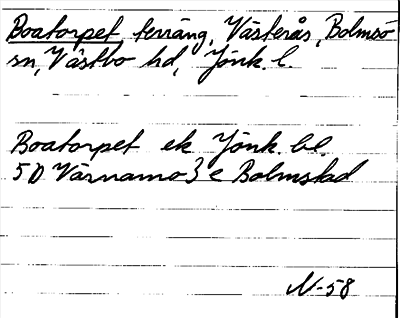 Boatorpet, terräng, Västerås, Bolmsö
sn, Västbo hd, Jönk. l.
Boatorpet ek Jönk. bl.
5D Värnamo 3 e Bolmstad
N-58